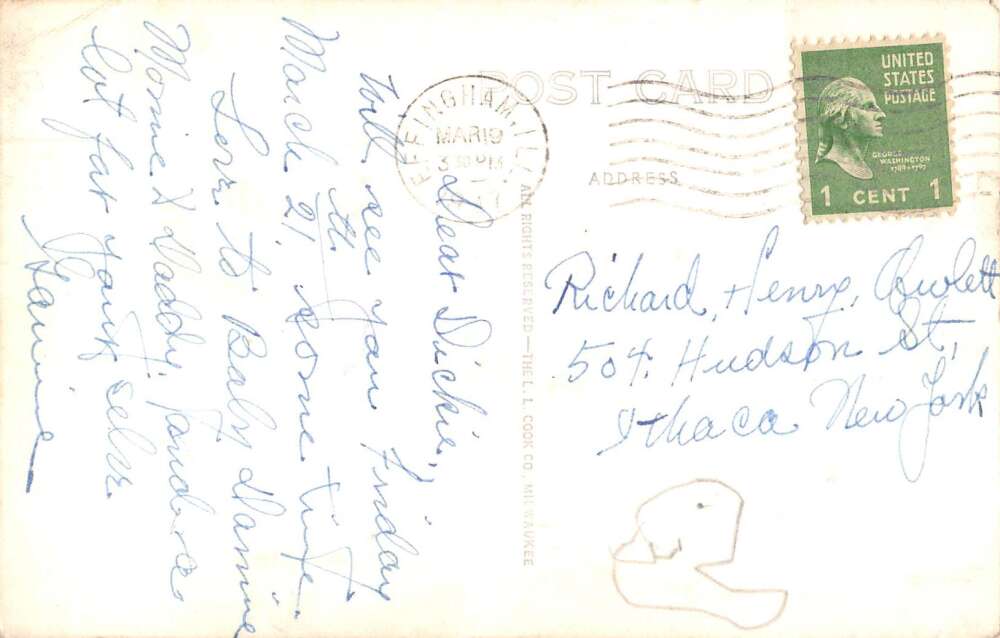 POST CARD
EFFINGHAM, ILL.
MAR 19
3 30 PM
UNITED
STATES
POSTAGE
GEORGE
WASHINGTON
1789-1797
1 CENT 1
ADDRESS
Dear Dickie,
Will see you Friday
March 21, some time.
th
Love to Baby
Momie & Daddy, and a
lot for your self.
ALL RIGHTS RESERVED—THE L. L. COOK CO., MILWAUKEE
Richard, Henry,
504. Hudson St,
Ithaca New York